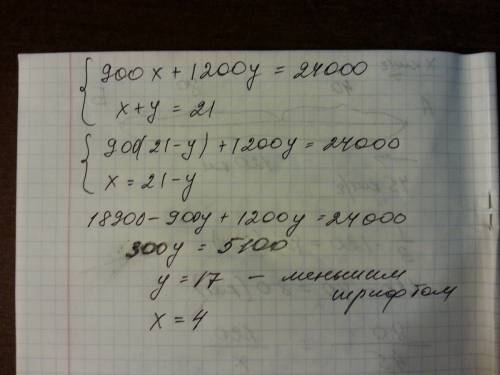 900x + 1200y = 24000
x + y = 21
900(21 - y) + 1200y = 24000
x = 21 - y
18900 - 900y + 1200y = 24000
300y = 5100
y = 17 - меньшим
шрифтом
x = 4